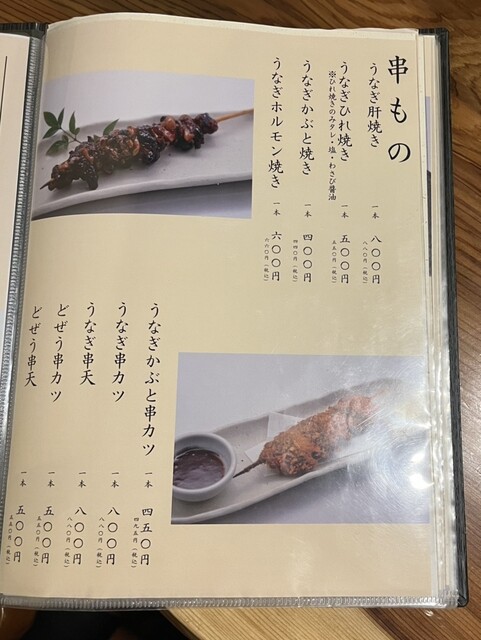 串もの
うなぎ肝焼き 一本 八〇〇円
八八〇円（税込）
うなぎひれ焼き 一本 五〇〇円
※ひれ焼きのみタレ・塩・わさび醤油
五五〇円（税込）
うなぎかぶと焼き 一本 四〇〇円
四四〇円（税込）
うなぎホルモン焼き 一本 六〇〇円
六六〇円（税込）
うなぎかぶと串カツ 一本 四五〇円
四九五円（税込）
うなぎ串カツ 一本 八〇〇円
八八〇円（税込）
うなぎ串天 一本 八〇〇円
八八〇円（税込）
どぜう串カツ 一本 五〇〇円
五五〇円（税込）
どぜう串天 一本 五〇〇円
五五〇円（税込）